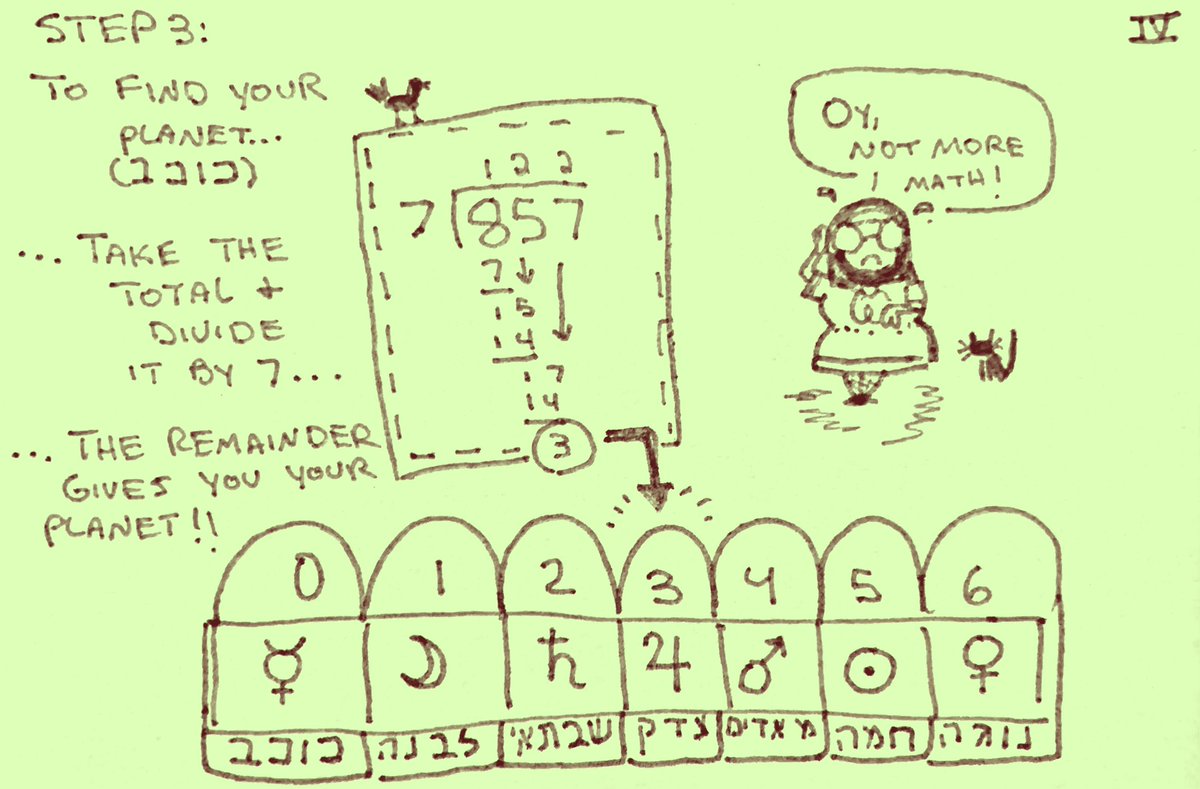 STEP 3:
IV
TO FIND YOUR
PLANET...
(כוכב)
... TAKE THE
TOTAL +
DIVIDE
IT BY 7...
... THE REMAINDER
GIVES YOU YOUR
PLANET!!
122
7 857
7
15
14
17
14
3
OY,
NOT MORE
MATH!
0 1 2 3 4 5 6
☿ ☽ ♄ ♃ ♂ ☉ ♀
כוכב לבנה שבתאי צדק מאדים חמה נוגה